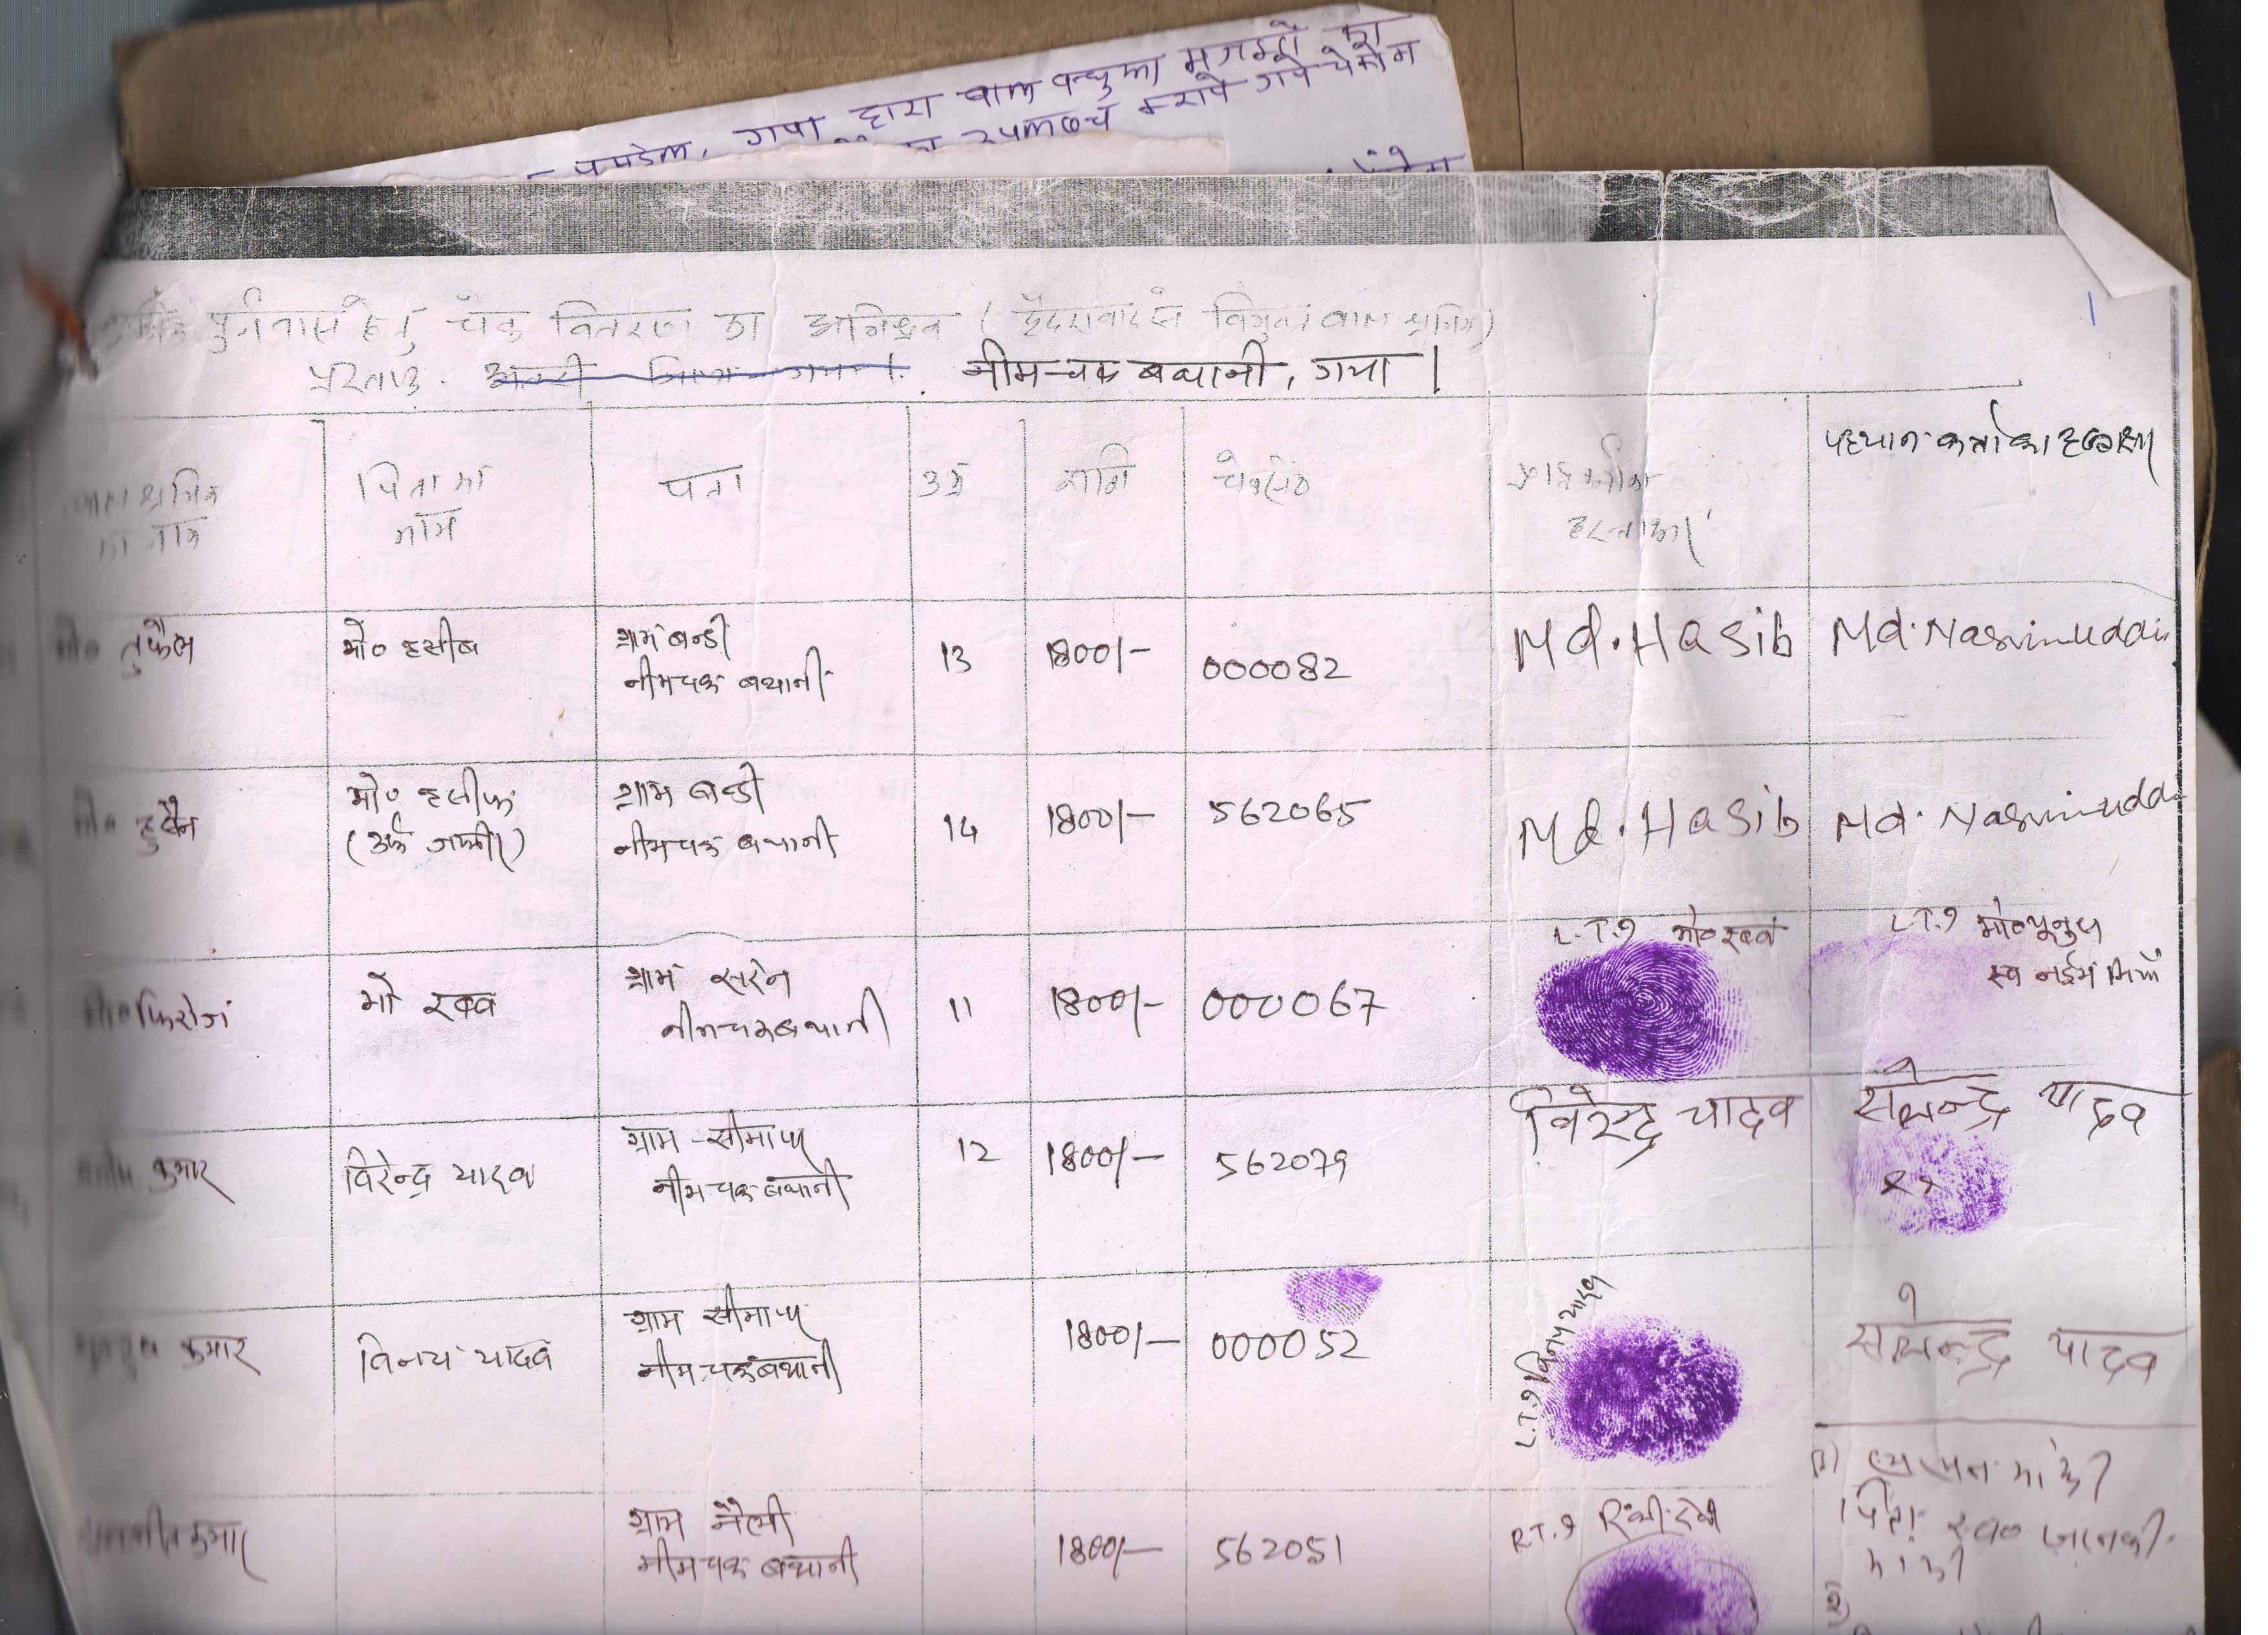 गया द्वारा बाल बन्धुआ मजदूरों का
उपलब्ध कराये गये चेकों
हेतु चेक वितरण का अभिश्रव ( हैदराबाद से विमुक्त बाल श्रमिक )
प्रखण्ड. नीमचक बथानी, गया |
बाल श्रमिक का नाम
पिता का नाम
पता
उम्र
राशि
चेक सं०
हस्ताक्षर
पहचान कर्ता का हस्ताक्षर
मो० तुफैल
मो० हसीब
ग्राम बन्डी
नीमचक बथानी
13
1800/-
000082
Md. Hasib
Md. Nasimuddin
मो० हुसैन
मो०
ग्राम बन्डी
नीमचक बथानी
14
1800/-
562065
Md. Hasib
Md. Nasimuddi
मो० फिरोज
मो रबब
ग्राम सरेन
नीमचक बथानी
11
1800/-
000067
L.T.I मो० रबब
L.T.I मो०
स्व नईम मियाँ
कुमार
विरेन्द्र यादव
ग्राम - सीमापर
नीमचक बथानी
12
1800/-
562079
विरेन्द्र यादव
यादव
कुमार
विनय यादव
ग्राम सीमापर
नीमचक बथानी
1800/-
000052
L.T.I विनय यादव
यादव
कुमार
ग्राम
नीमचक बथानी
1800/-
562051
R.T.I देवी
पिता स्व० जानकी
मांझी